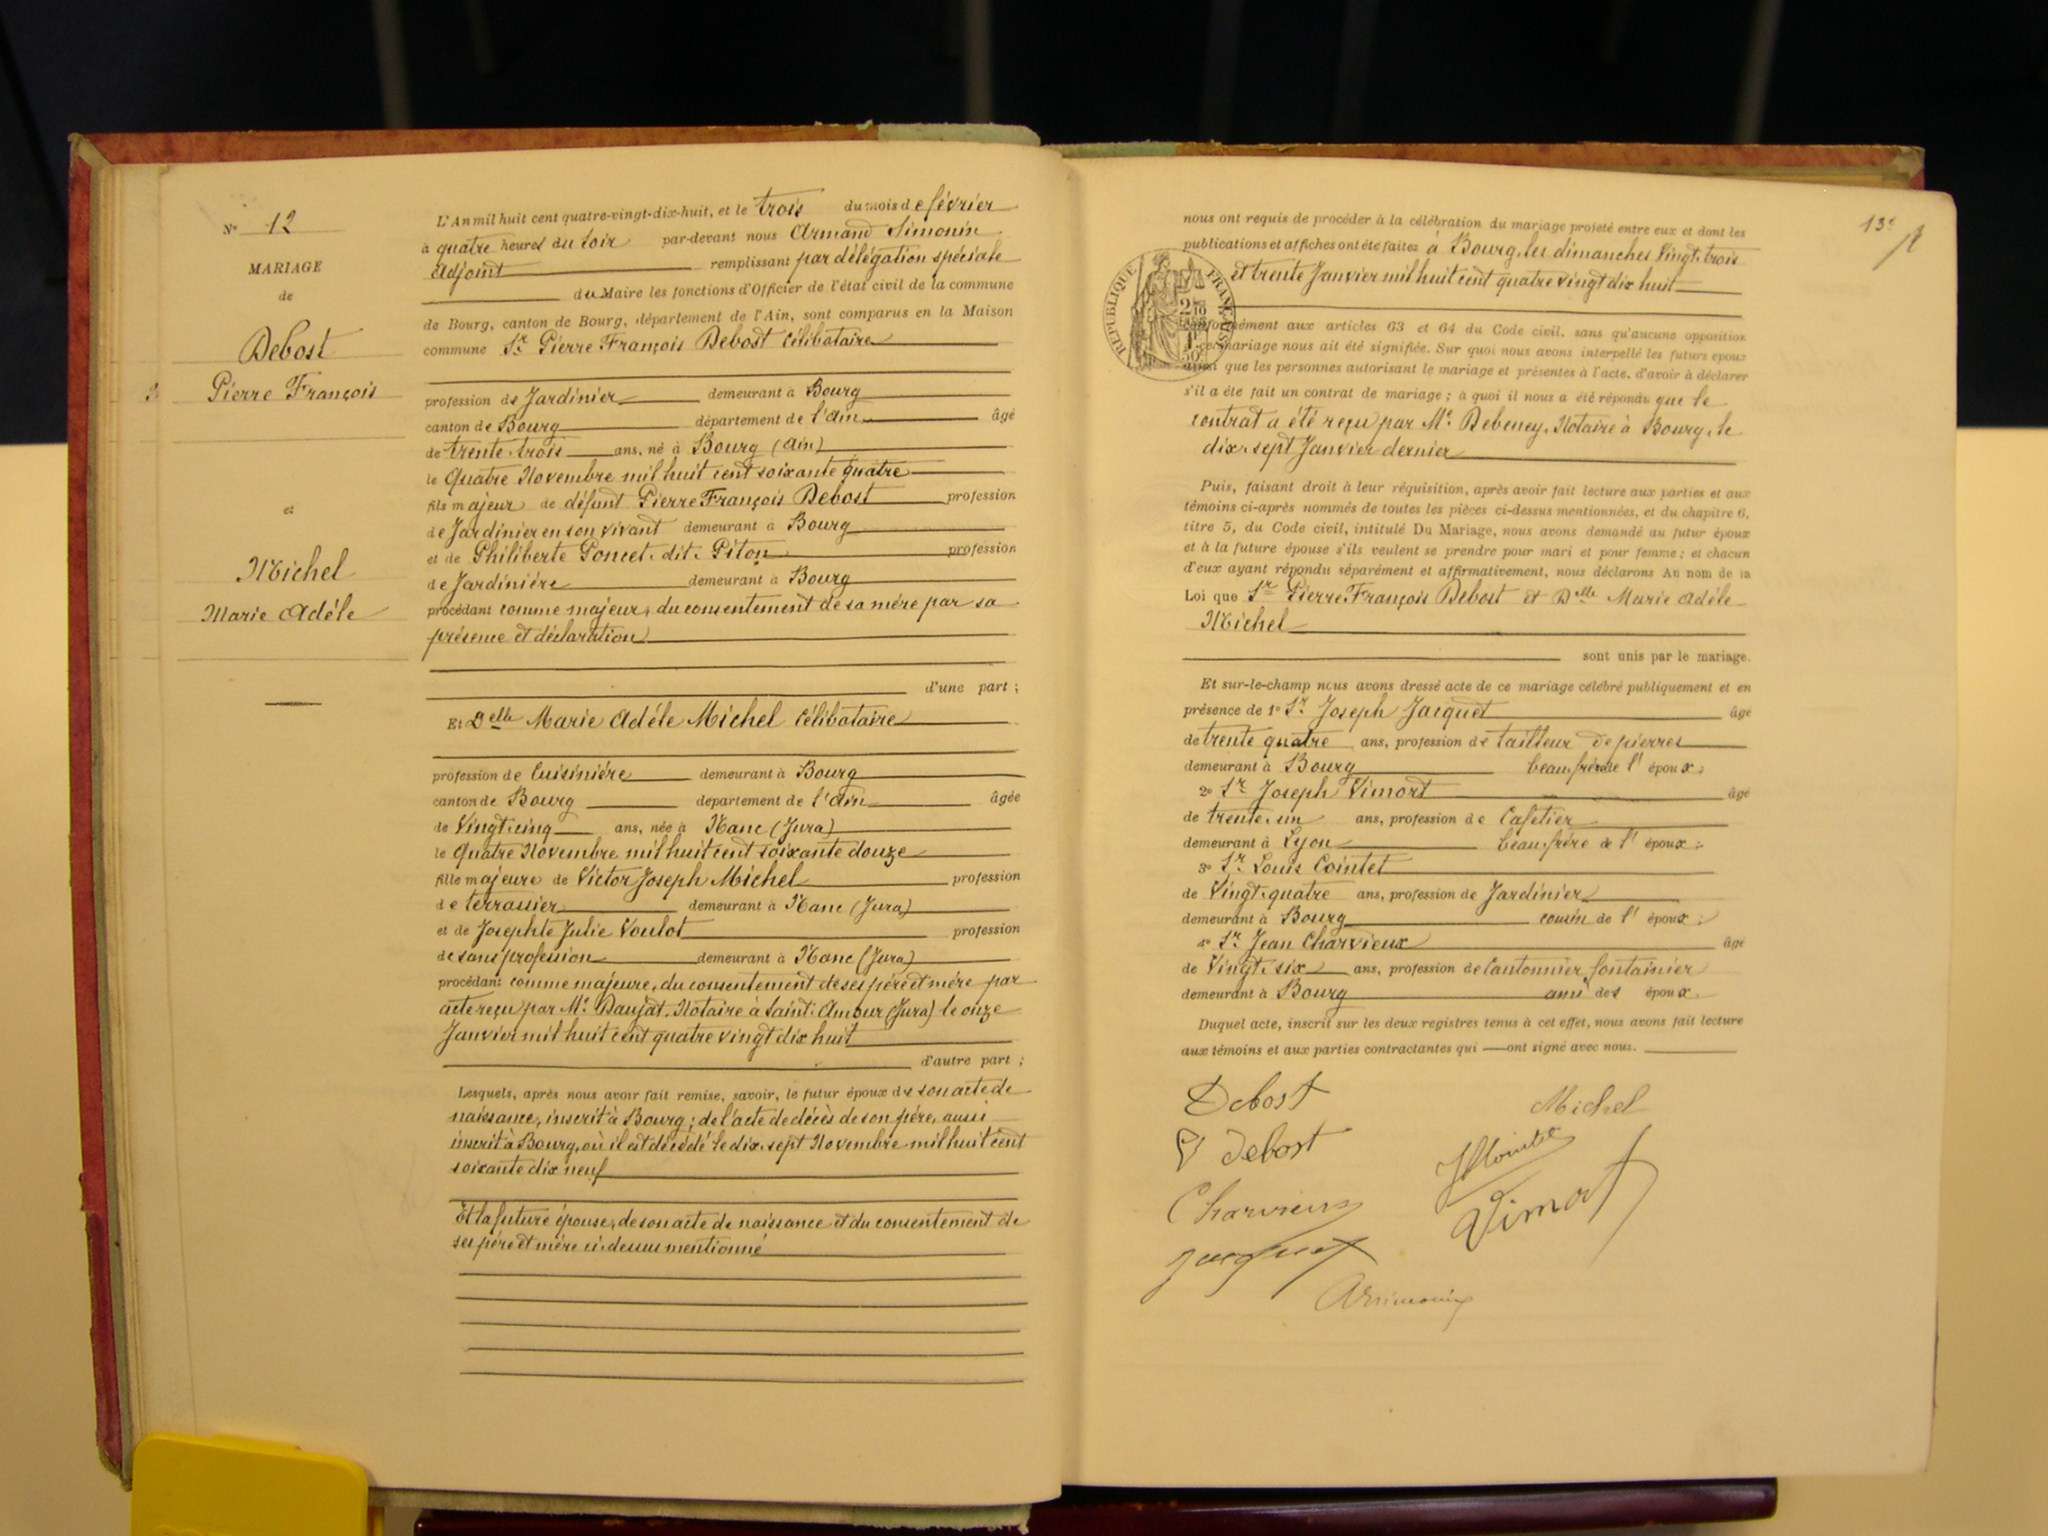 No 12
MARIAGE
de
Debost
Pierre François
et
Michel
Marie Adéle
L'An mil huit cent quatre-vingt-dix-huit, et le trois du mois de février
à quatre heures du soir par-devant nous Armand Simonin
Adjoint remplissant par délégation spéciale
du Maire les fonctions d'Officier de l'état civil de la commune
de Bourg, canton de Bourg, département de l'Ain, sont comparus en la Maison
commune Sr Pierre François Debost célibataire
profession de Jardinier demeurant à Bourg
canton de Bourg département de l'Ain âgé
de trente-trois ans, né à Bourg (Ain)
le Quatre Novembre mil huit cent soixante quatre
fils majeur de défunt Pierre François Debost profession
de Jardinier en son vivant demeurant à Bourg
et de Philiberte Poncet-dit-Piton profession
de Jardinière demeurant à Bourg
procédant comme majeur, du consentement de sa mère par sa
présence et déclaration
d'une part ;
Et Delle Marie Adéle Michel célibataire
profession de Cuisinière demeurant à Bourg
canton de Bourg département de l'Ain âgée
de Vingt-cinq ans, née à Nanc (Jura)
le Quatre Novembre mil huit cent soixante douze
fille majeure de Victor Joseph Michel profession
de terrassier demeurant à Nanc (Jura)
et de Josephte Julie Voulot profession
de sans profession demeurant à Nanc (Jura)
procédant comme majeure, du consentement de ses père et mère par
acte reçu par Me Daujat, Notaire à Saint-Amour (Jura) le onze
Janvier mil huit cent quatre vingt dix huit
d'autre part ;
Lesquels, après nous avoir fait remise, savoir, le futur époux de son acte de
naissance, inscrit à Bourg ; de l'acte de décès de son père, aussi
inscrit à Bourg, où il est décédé le dix-sept Novembre mil huit cent
soixante dix neuf
Et la future épouse, de son acte de naissance et du consentement de
ses père et mère ci-dessus mentionné
13e
nous ont requis de procéder à la célébration du mariage projeté entre eux et dont les
publications et affiches ont été faites à Bourg, les dimanches Vingt-trois
et trente Janvier mil huit cent quatre vingt dix huit
RÉPUBLIQUE FRANÇAISE
conformément aux articles 63 et 64 du Code civil, sans qu'aucune opposition
à ce mariage nous ait été signifiée. Sur quoi nous avons interpellé les futurs époux
ainsi que les personnes autorisant le mariage et présentes à l'acte, d'avoir à déclarer
s'il a été fait un contrat de mariage ; à quoi il nous a été répondu que le
contrat a été reçu par Me Debeney, Notaire à Bourg, le
dix-sept Janvier dernier
Puis, faisant droit à leur réquisition, après avoir fait lecture aux parties et aux
témoins ci-après nommés de toutes les pièces ci-dessus mentionnées, et du chapitre 6,
titre 5, du Code civil, intitulé Du Mariage, nous avons demandé au futur époux
et à la future épouse s'ils veulent se prendre pour mari et pour femme ; et chacun
d'eux ayant répondu séparément et affirmativement, nous déclarons Au nom de la
Loi que Sr Pierre François Debost et Delle Marie Adéle
Michel
sont unis par le mariage.
Et sur-le-champ nous avons dressé acte de ce mariage célébré publiquement et en
présence de 1o Sr Joseph Jacquet âgé
de trente quatre ans, profession de tailleur de pierres
demeurant à Bourg beau-frère de l'époux ;
2o Sr Joseph Vimort âgé
de trente-un ans, profession de Cafetier
demeurant à Lyon beau-frère de l'époux ;
3o Sr Louis Cointet
de Vingt-quatre ans, profession de Jardinier
demeurant à Bourg cousin de l'époux ;
4o Sr Jean Charvieux âgé
de Vingt-six ans, profession de Cantonnier fontainier
demeurant à Bourg ami des époux.
Duquel acte, inscrit sur les deux registres tenus à cet effet, nous avons fait lecture
aux témoins et aux parties contractantes qui ont signé avec nous.
Debost Michel
Debost
Charvieux Vimort
Jacquet
ASimonin